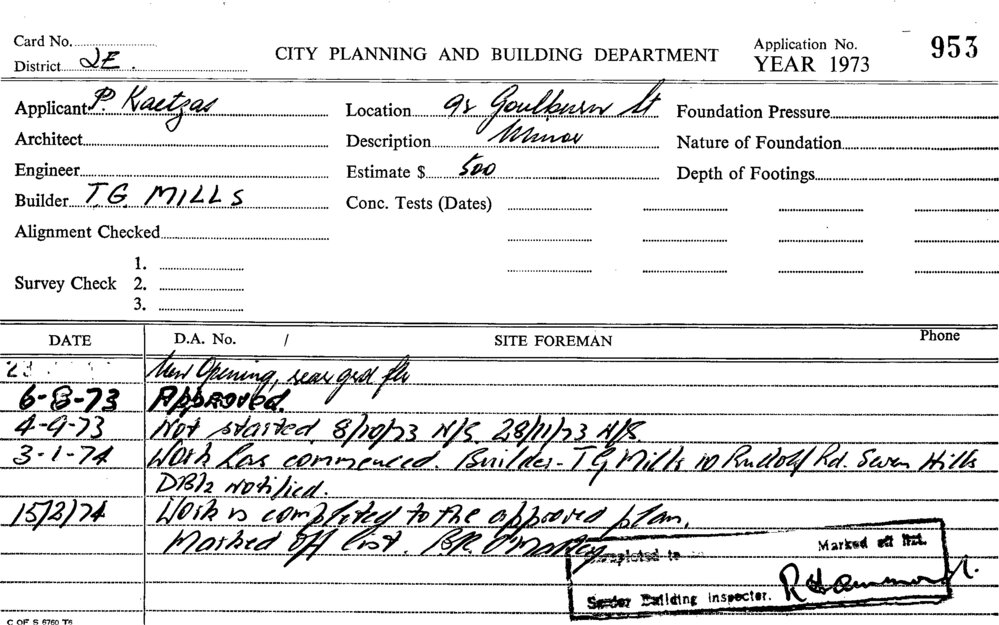 Card No.
District 2E.
CITY PLANNING AND BUILDING DEPARTMENT
Application No. 953
YEAR 1973
Applicant P. Kaetzas
Location 92 Goulburn St
Foundation Pressure
Architect
Description Minor
Nature of Foundation
Engineer
Estimate $ 500
Depth of Footings
Builder T.G. MILLS
Conc. Tests (Dates)
Alignment Checked
Survey Check
1.
2.
3.
DATE D.A. No. / SITE FOREMAN Phone
New Opening, rear grd flr
6-8-73 Approved.
4-9-73 Not started. 8/10/73 N/S. 28/11/73 N/S.
3-1-74 Work has commenced. Builder - TG Mills 10 Rudolf Rd. Seven Hills
notified.
15/2/74 Work is completed to the approved plan.
Marked off list. B.R. O'Malley
Completed to
Marked off list.
Building Inspector.
C OF S 6760 T6